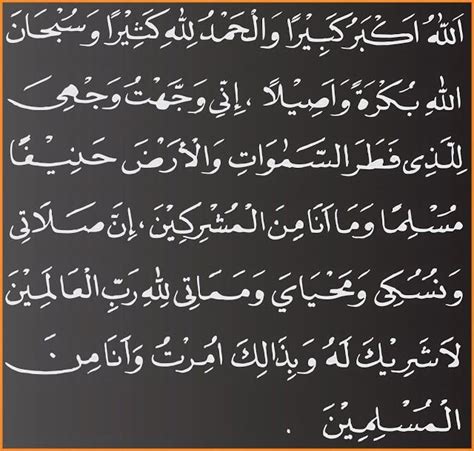 اَللهُ اَكْبَرُ كَبِيْرًا وَالْحَمْدُ لِلهِ كَثِيْرًا وَسُبْحَانَ
اللهِ بُكْرَةً وَاَصِيْلًا ، اِنِّى وَجَّهْتُ وَجْهِىَ
لِلَّذِى فَطَرَ السَّمٰوَاتِ وَالْأَرْضَ حَنِيْفًا
مُسْلِمًا وَمَا اَنَا مِنَ الْمُشْرِكِيْنَ ، اِنَّ صَلَاتِى
وَنُسُكِى وَمَحْيَاىَ وَمَمَاتِى لِلهِ رَبِّ الْعَالَمِيْنَ
لَاشَرِيْكَ لَهُ وَبِذَالِكَ اُمِرْتُ وَاَنَا مِنَ
الْمُسْلِمِيْنَ .